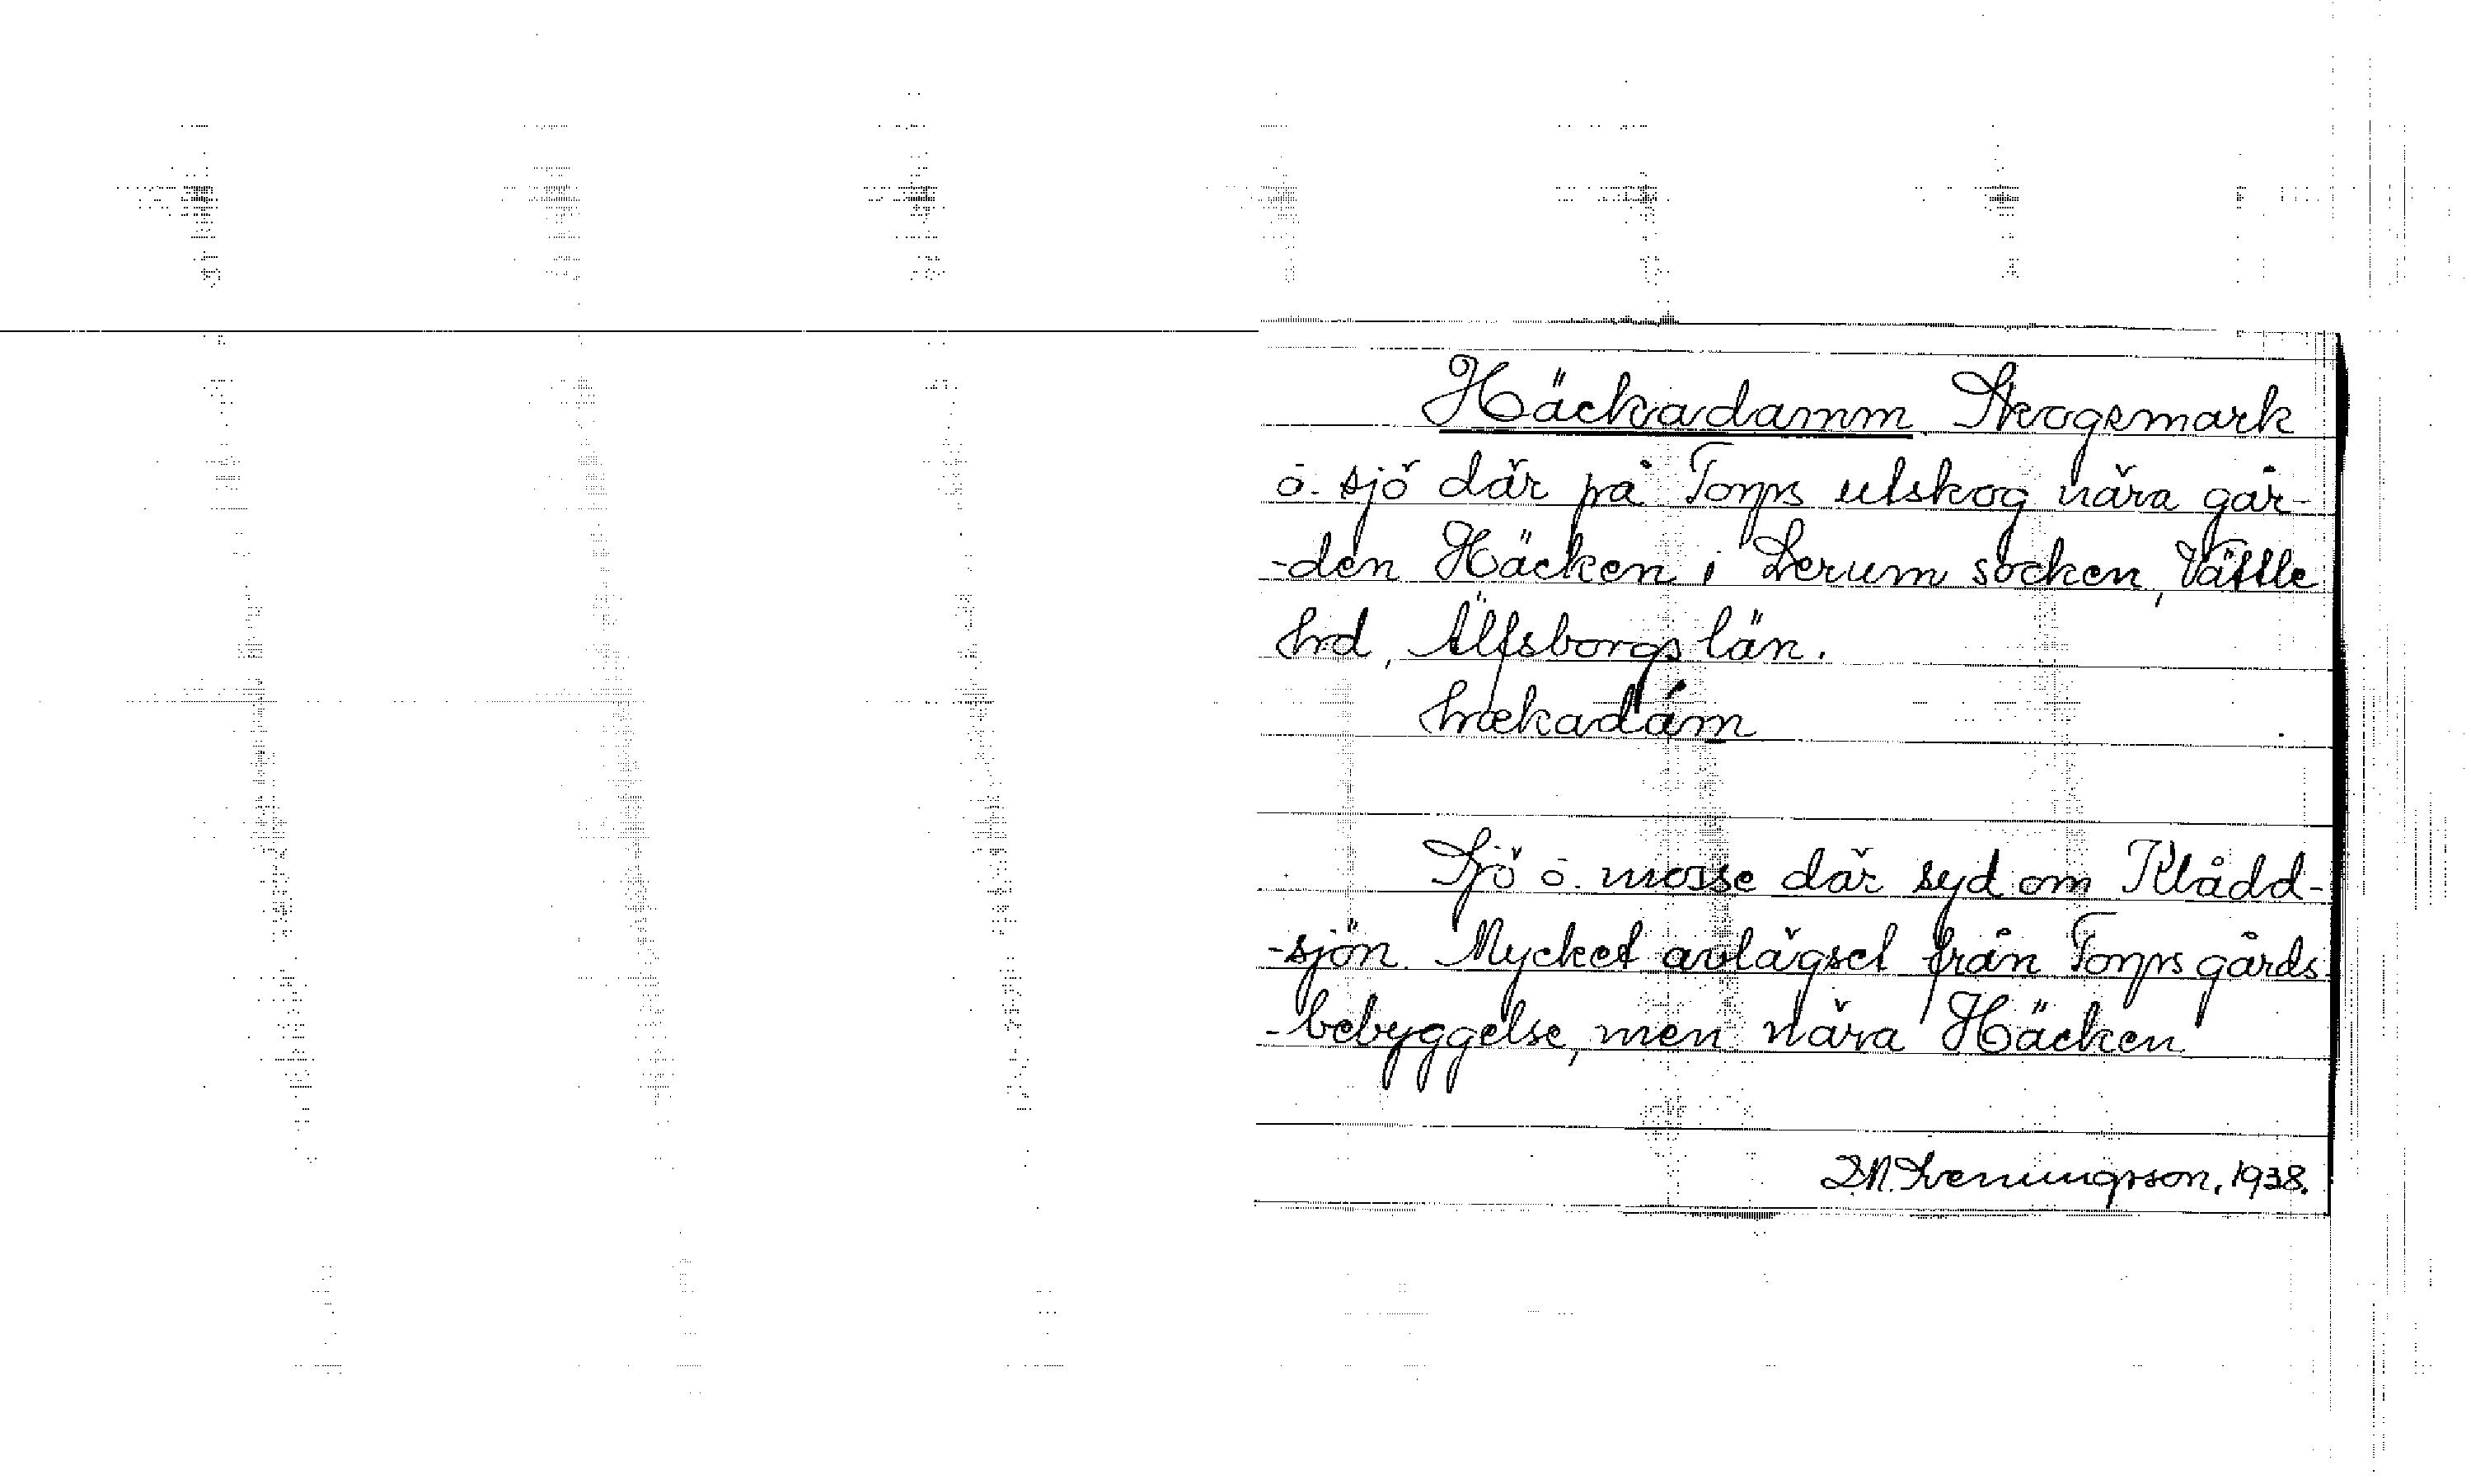 Häckadamm Skogsmark
o. sjö där på Torps utskog nära går-
-den Häcken i Lerum socken, Vättle
hrd, Älfsborgs län.
hækadám
Sjö o. mosse där syd om Klådd-
-sjön. Mycket avlägset från Torps gårds-
-bebyggelse, men nära Häcken
D.N. Svenungsson, 1938.